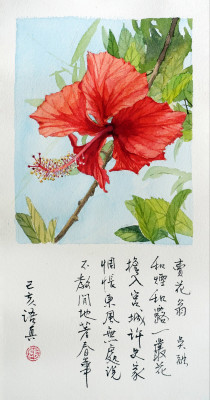 賣花翁 吳融
和煙和露一叢花
擔入宮城許史家
惆悵東風無處説
不教閒地著春華
己亥 語真